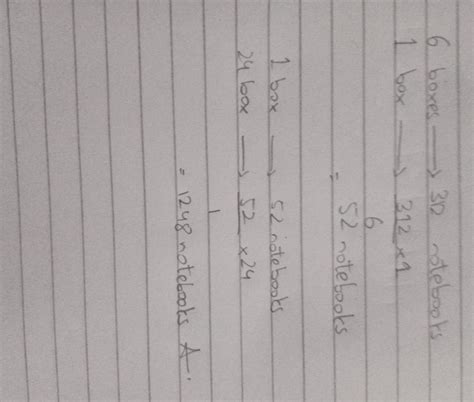 6 boxes → 312 notebooks
1 box → 312 × 1
6
= 52 notebooks
1 box → 52 notebooks
24 box → 52 × 24
1
= 1248 notebooks A.